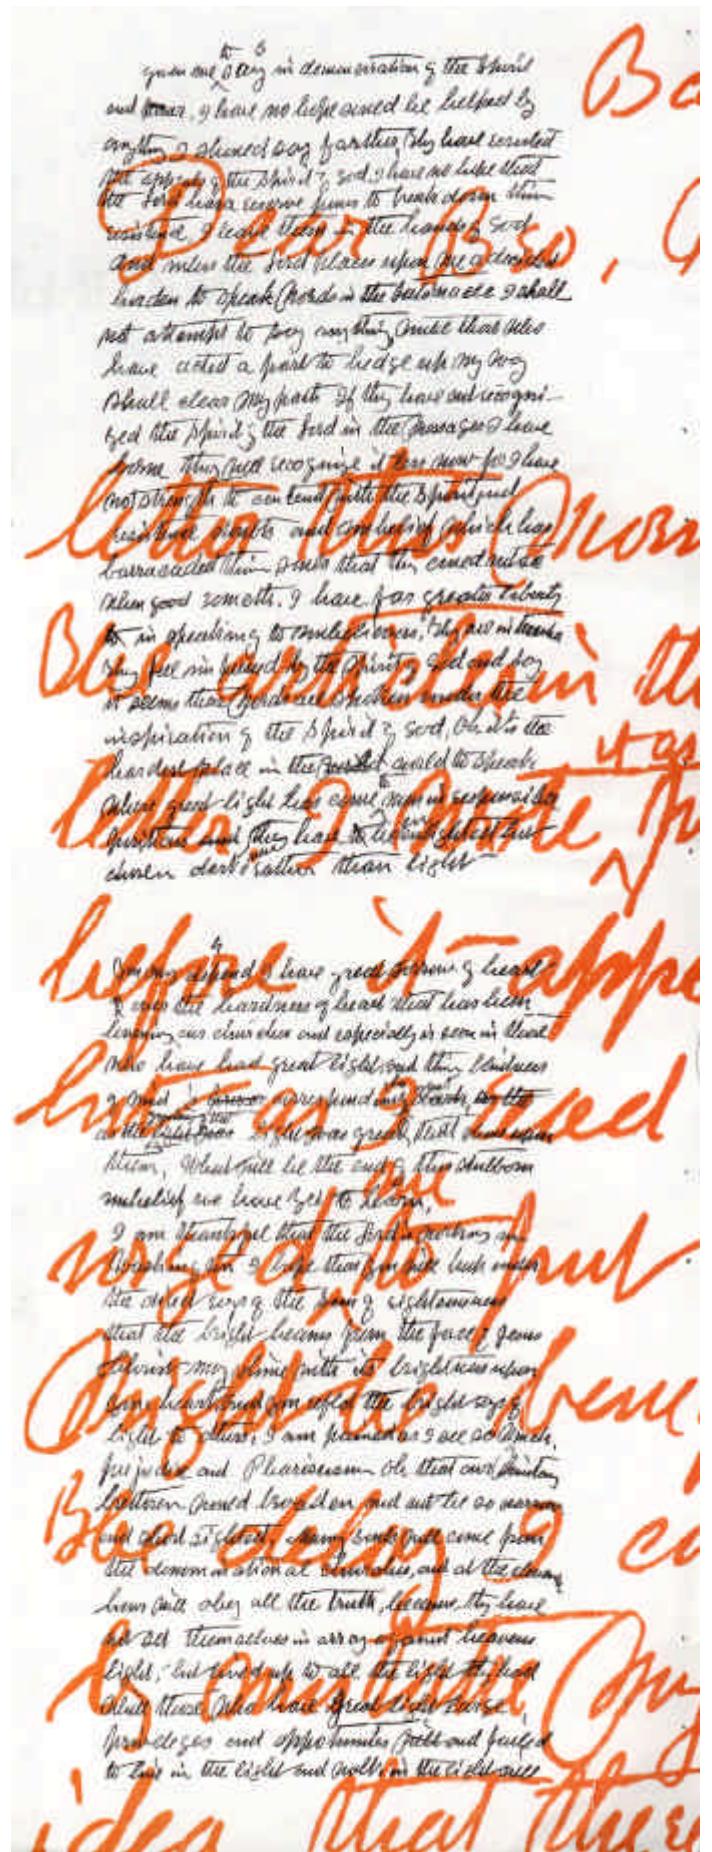 given me to say in demonstration of the Spirit
and power, I have no hope would be helped by
anything I should say farther they have resisted
the appeals of the Spirit of God. I have no hope that
the Lord has a reserve power to break down their
resistance. I leave them in the hands of God
and unless the Lord places upon me a decided
burden to speak words in the tabernacle I shall
not attempt to say anything until those who
have acted a part to hedge up my way
shall clear my path If they have not recogni-
zed the Spirit of the Lord in the messages I have
borne they will recognize it less now for I have
not strength to contend with the Spirit and
resistance doubts and unbelief which has
barracaded their souls that they could not see
when good cometh. I have far greater liberty
in speaking to unbelievers. They are in
They feel impressed by the Spirit of God and say
it seems that words are spoken under the
inspiration of the Spirit of God. Oh it is the
hardest place in the world to speak
where great light has come to men in responsible
positions they have been enlightened but
chosen darkness rather than light
I have great sorrow of heart
over the hardness of heart that has been
our churches and especially is seen in those
who have had great light and their blindness
of mind is corresponding
as the light was great that shone upon
them, What will be the end of this stubborn
unbelief we have yet to learn,
I am thankful that the Lord is
I hope that you will
the direct rays of the Son of righteousness
that the bright beams from the face of Jesus
Christ may shine with its brightness upon
your heart and you reflect the bright rays of
light to others, I am pained as I see so much
prejudice and Phariseeism Oh that our
brethren would broaden and not be so narrow
and short sighted, Many souls will come from
the denominational churches, and at the eleventh
hour will obey all the truth, because they have
not set themselves in array against heavens
light, but lived up to all the light they had
while those who have great light large
privileges and opportunities and failed
to live in the light and walk in the light will
Dear Bro,
letter this morn
Blve article in the
letter I wrote it as
before it appe
but as I read
are
urged to put
might be bene
Ble delay I co
by another
idea that there